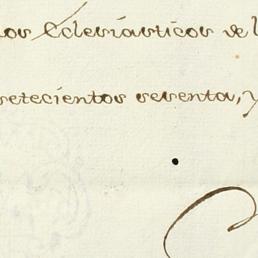 los Eclesiasticos de l
setecientos sesenta, y